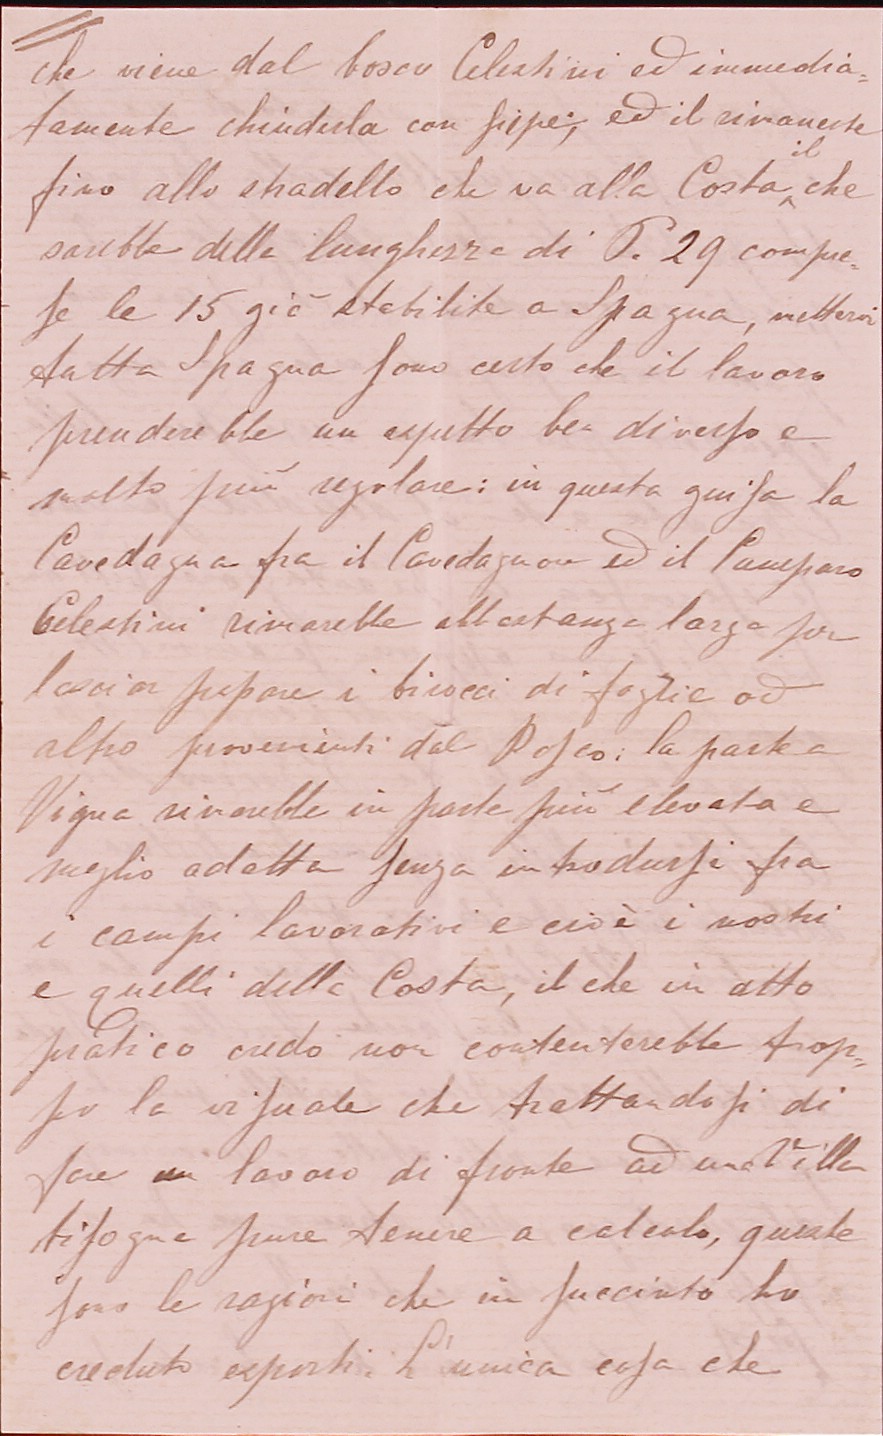 che viene dal bosco Celestini ed immedia=
tamente chiuderla con siepe; ed il rimanente
fino allo stradello che va alla Costa, il che
sarebbe della lunghezza di P. 29 compre=
se le 15 già stabilite a Spagna, mettervi
tutta Spagna sono certo che il lavoro
prenderebbe un aspetto ben diverso e
molto più regolare: in questa guisa la
Cavedagna fra il Cavedagnone ed il Campazo
Celestini rimarebbe abbastanza larga per
lasciar passare i birocci di foglie od
altro provenienti dal Bosco: la parte a
Vigna rimarebbe in parte più elevata e
meglio adatta senza introdursi fra
i campi lavorativi e cioè i nostri
e quelli della Costa, il che in atto
pratico credo non contenterebbe trop=
po la visuale che trattandosi di
fare un lavoro di fronte ad una Villa
bisogna pure tenere a calcolo, queste
sono le ragioni che in succinto ho
creduto esporti. L'unica cosa che